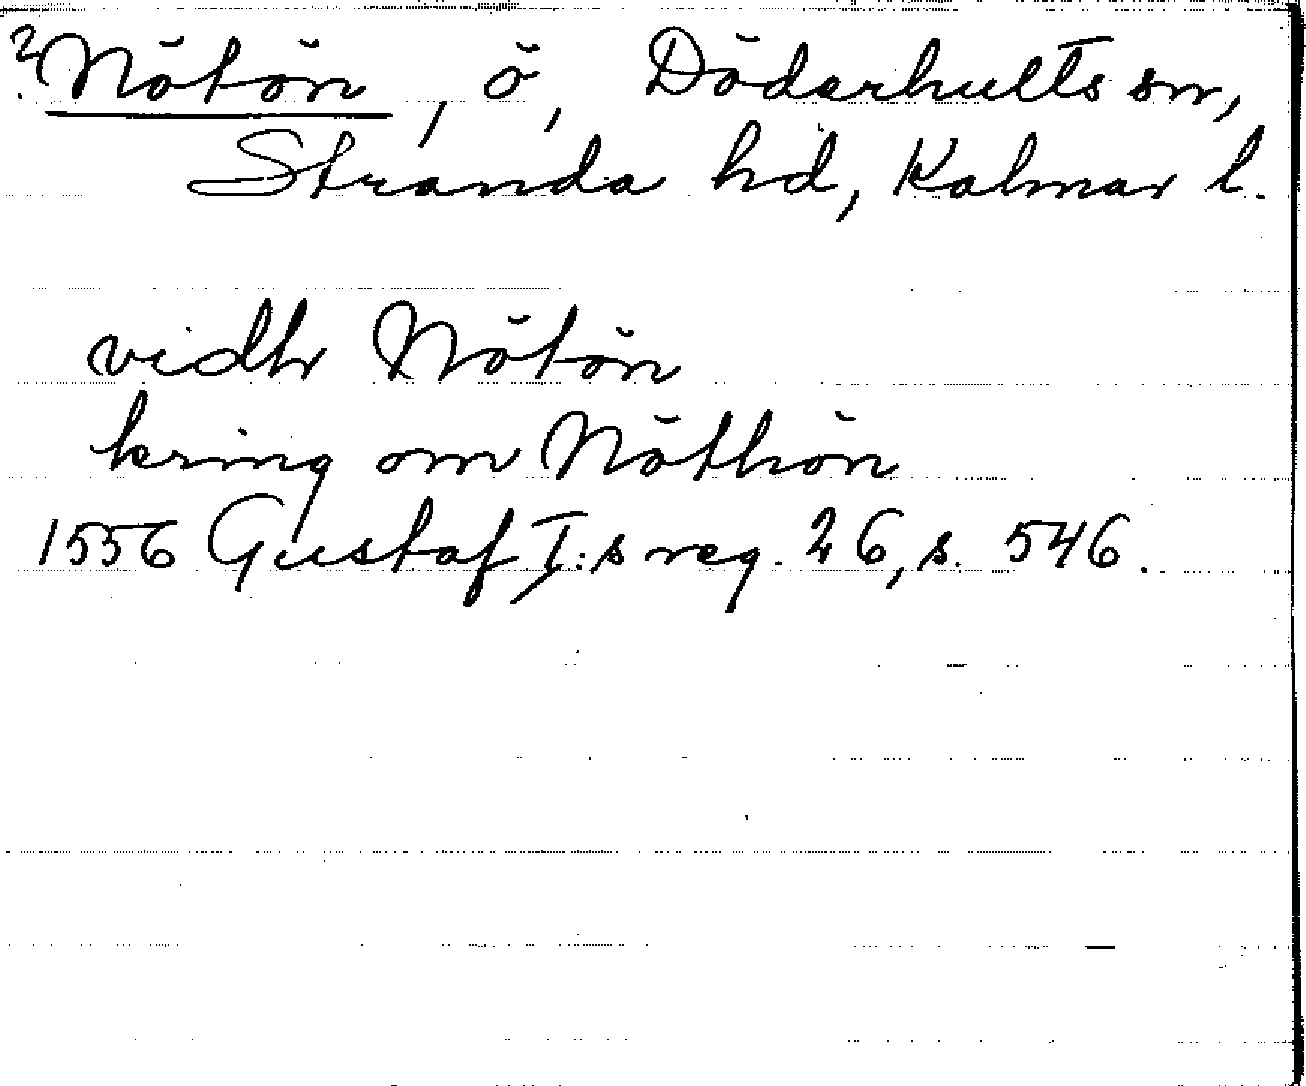 ?Nötön, ö, Döderhults sn,
Stranda hd, Kalmar l.
vidh Nötön
kring om Nöthön
1556 Gustaf I:s reg. 26, s. 546.